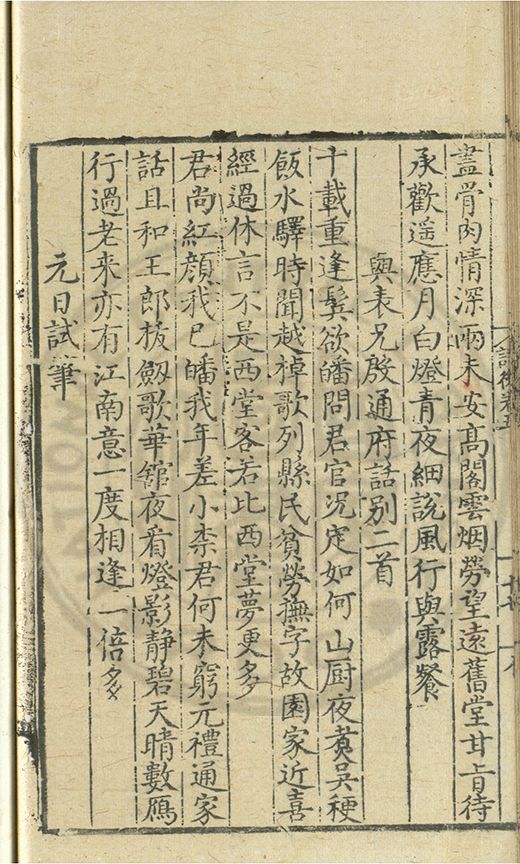 盡骨肉情深兩未安高閣雲烟勞望遠舊堂甘旨待
承歡遥應月白燈青夜細說風行與露餐
與表兄殷通府話别二首
十載重逢鬂欲皤問君官况定如何山厨夜煑吴粳
飯水驛時聞越棹歌列縣民貧勞撫字故園家近喜
經過休言不是西堂客若比西堂夢更多
君尚紅顔我已皤我年差小柰君何未窮元禮通家
話且和王郎拔劔歌華舘夜看燈影静碧天晴數鴈
行過老来亦有江南意一度相逢一倍多
元日試筆